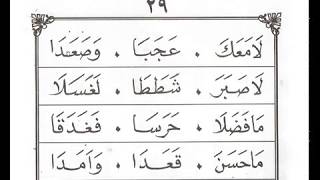 ٢٩
لَامَعَكَ . عَجَبَا . وَصَعَدَا
لَاصَبَرَ . شَطَطَا . لَغَسَلَا
مَافَضَلَا . حَرَسَا . فَغَدَقَا
مَاحَسَنَ . قَعَدَا . وَاَمَدَا